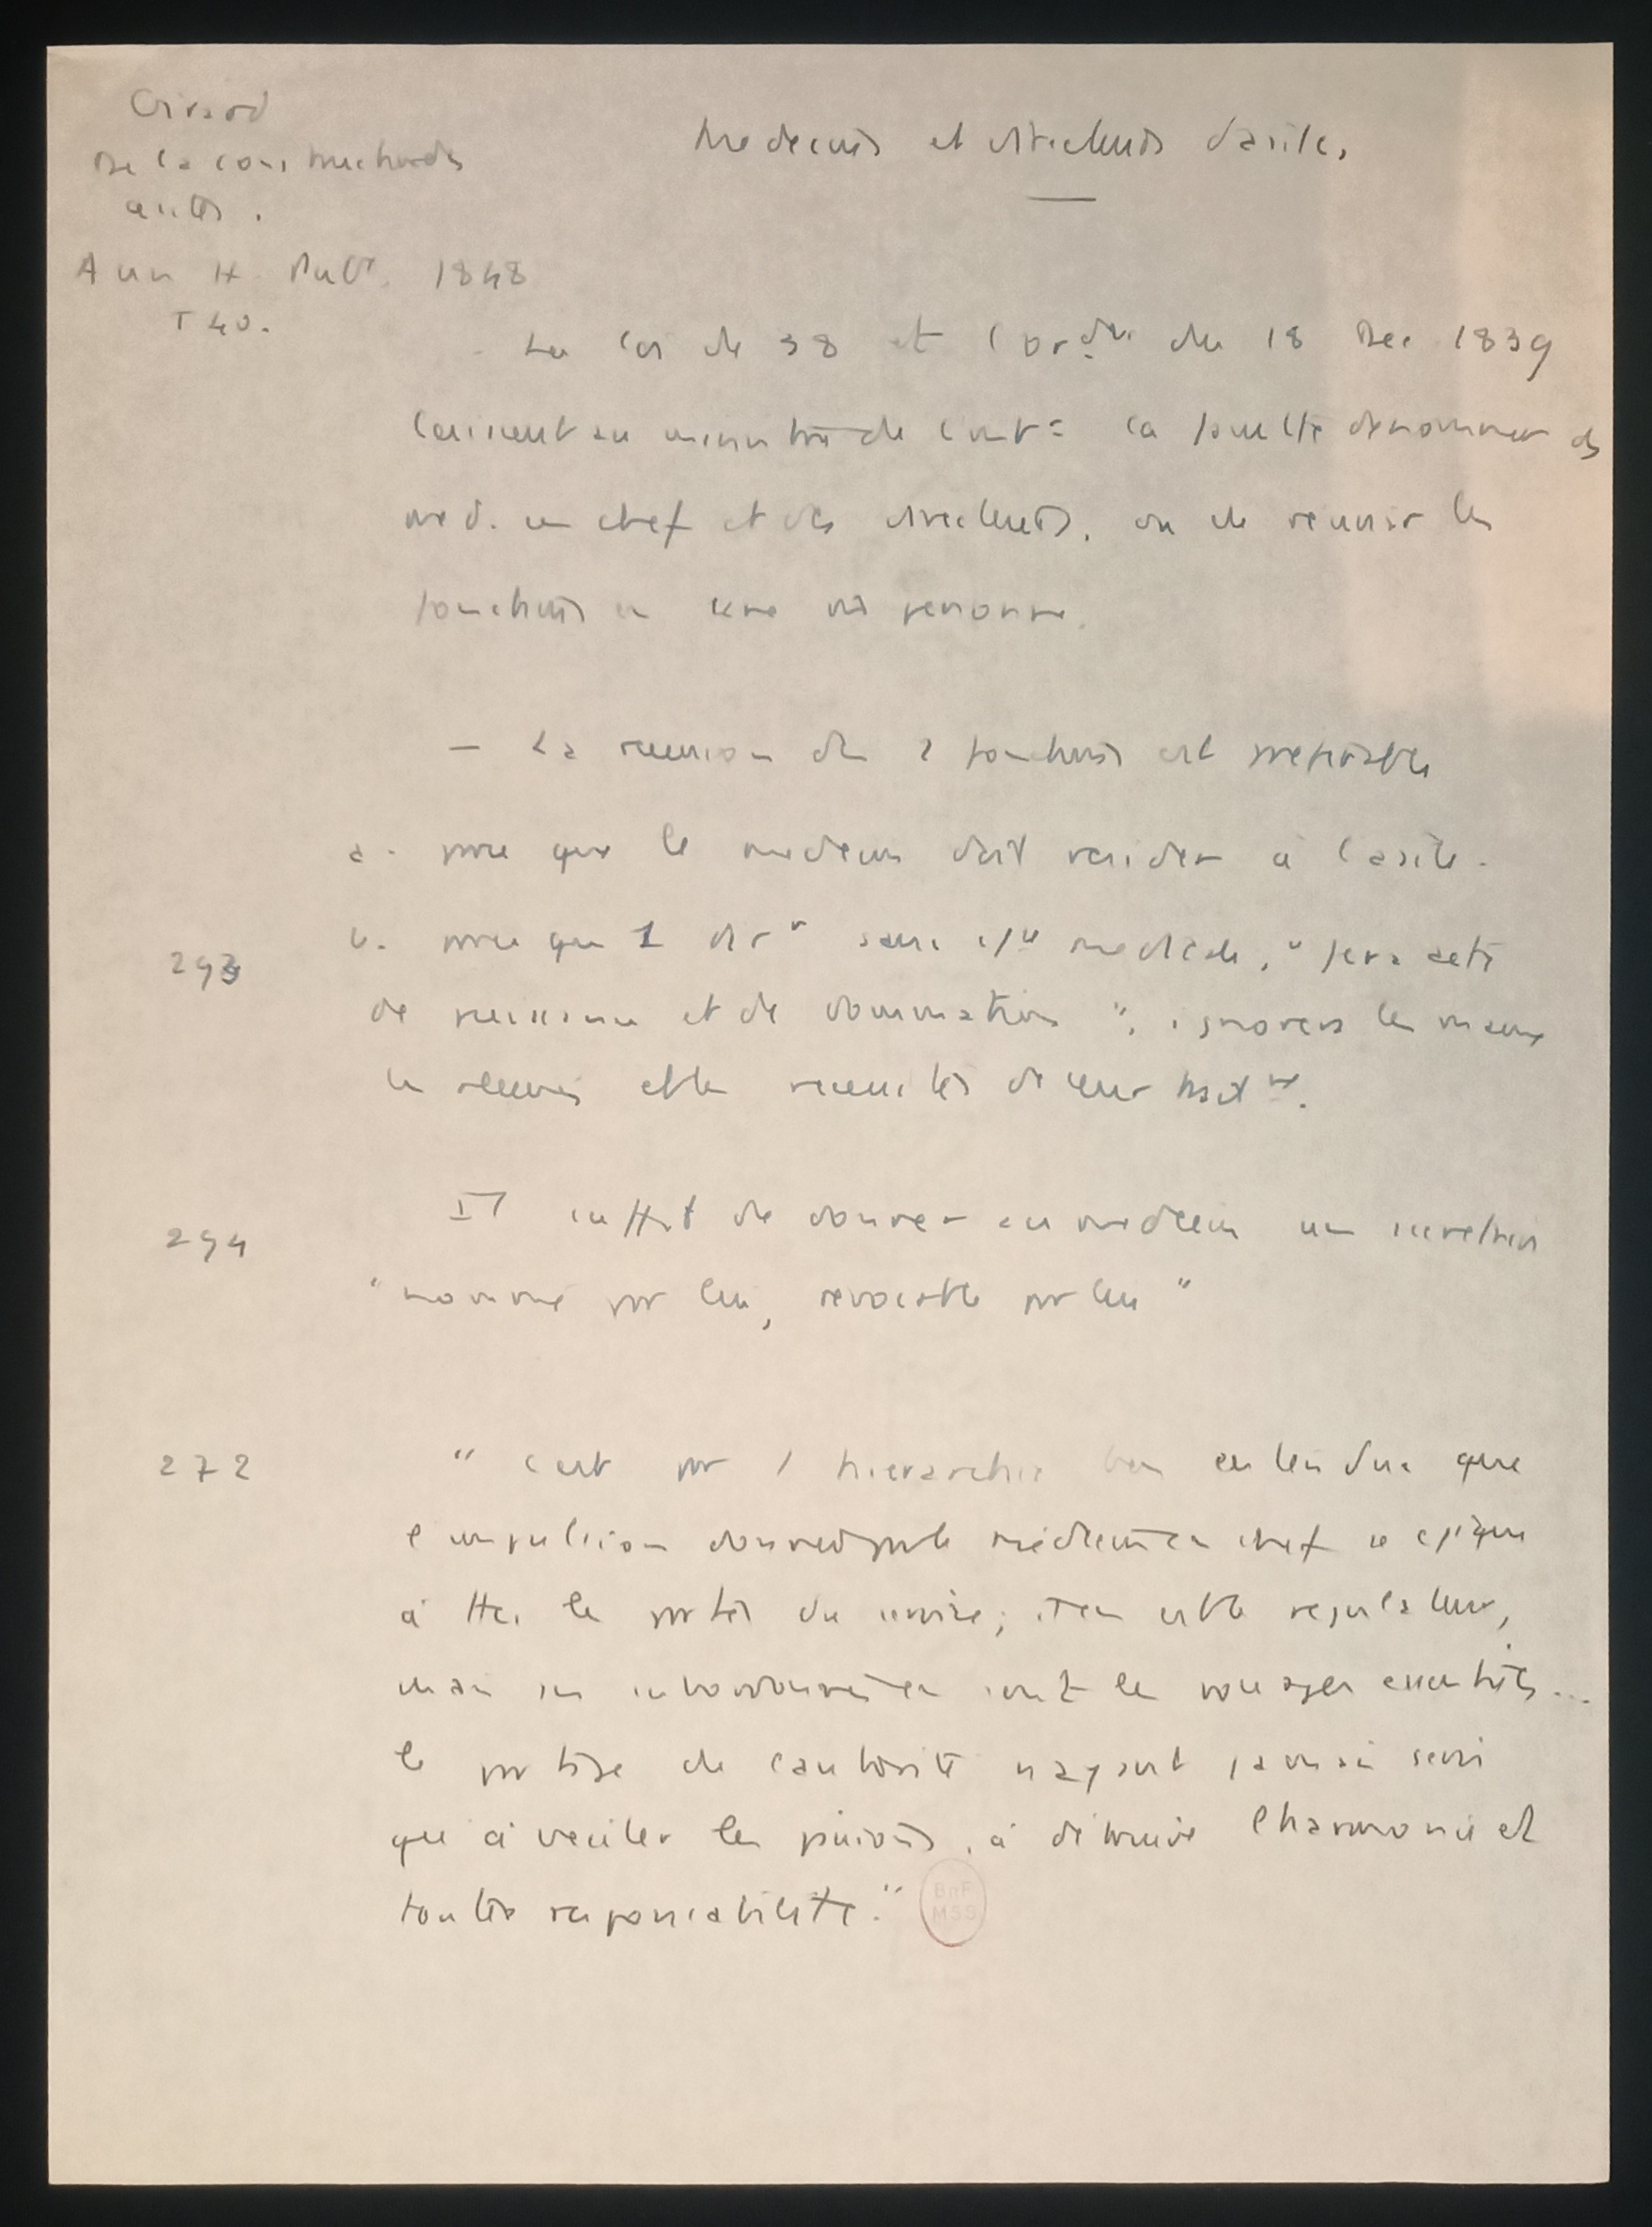 Girard
De la construction des
asiles.
Ann H. Pub. 1848
T 40.
Medecins et directeurs d'asile,
La loi de 38 et l'ord. du 18 Dec 1839
laissent au ministre de l'int. la faculté de nommer des
med. en chef et des directeurs, ou de reunir les
fonctions en une personne.
— La reunion des 2 fonctions est preferable
a. parce que le medecin doit resider à l'asile.
b. parce que 1 dir sans medicale, "sera
293 de puissance et de domination", ignorera les maux
le et les de leur
294 Il suffit de donner au medecin un
"nommé par lui, revocable par lui"
272 "C'est par 1 hierarchie bien entendue que
l'impulsion donnée par le médecin en chef se
à ttes les parties du service; il en est le regulateur,
mais ses subordonnés en sont les rouages essentiels...
le partage de l'autorité n'ayant jamais servi
qu'à les passions, à détruire l'harmonie et
toute responsabilité."
BnF
MSS